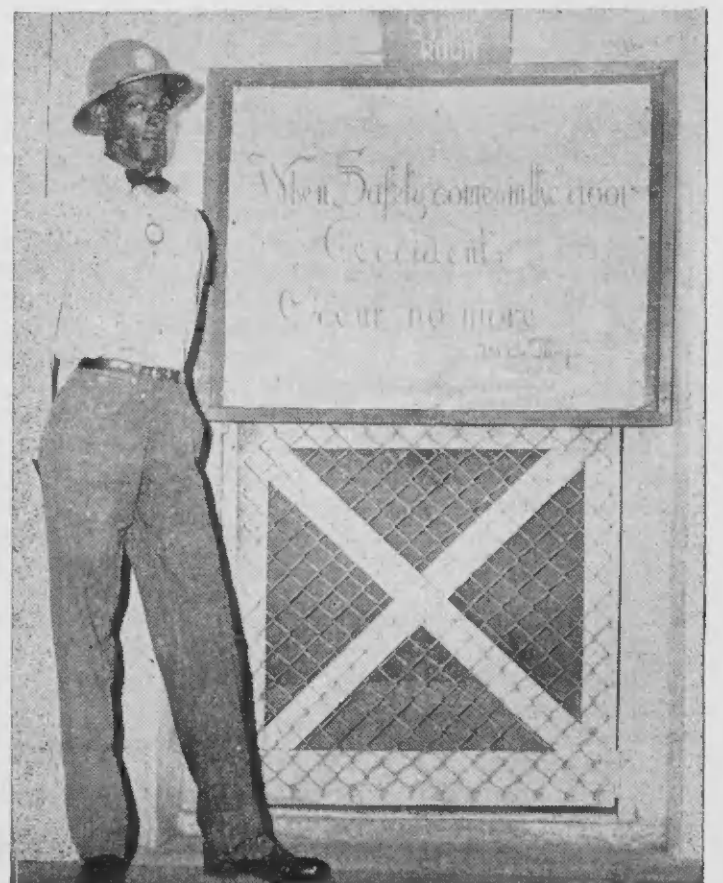 STORE
ROOM
When Safety comes in the door
Accidents
Occur no more